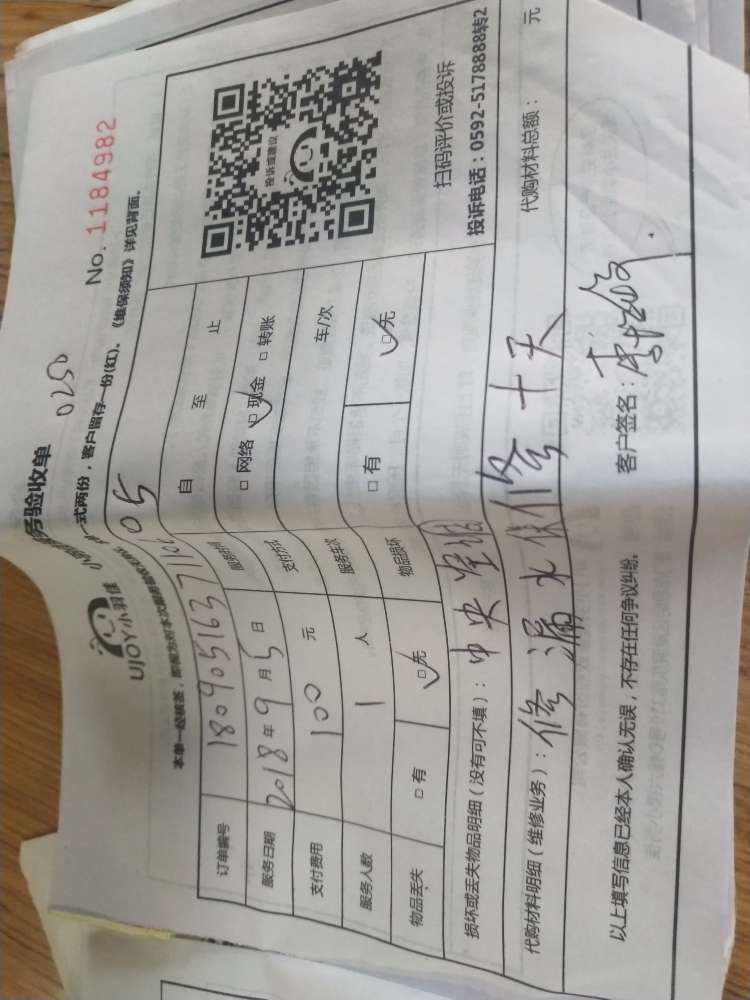 务验收单
0250
No. 1184982
UJOY小羽佳
一式两份，客户留存一份(红)、《维保须知》详见背面。
订单编号 18090516371605
服务日期 2018年9月5日 服务时间 自 至 止
支付费用 100 元 支付方式 □网络 □现金 □转账
服务人数 1 人 服务车次 车/次
物品丢失 □有 □无 物品损坏 □有 □无
投诉或建议
扫码评价或投诉
投诉电话：0592-5178888转2
损坏或丢失物品明细（没有可不填）：中央空调
代购材料明细（维修业务）：修漏水保修十天
代购材料总额： 元
以上填写信息已经本人确认无误，不存在任何争议纠纷。
客户签名：